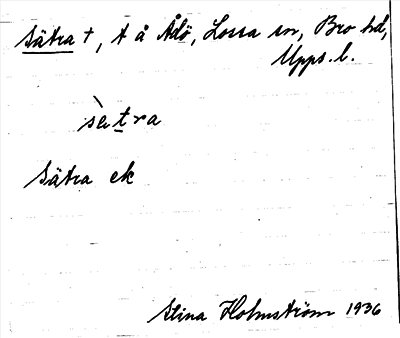 Sätra +, t å Ådö, Lossa sn, Bro hd,
Upps. l.
sètra
Sätra ek
Stina Holmström 1936